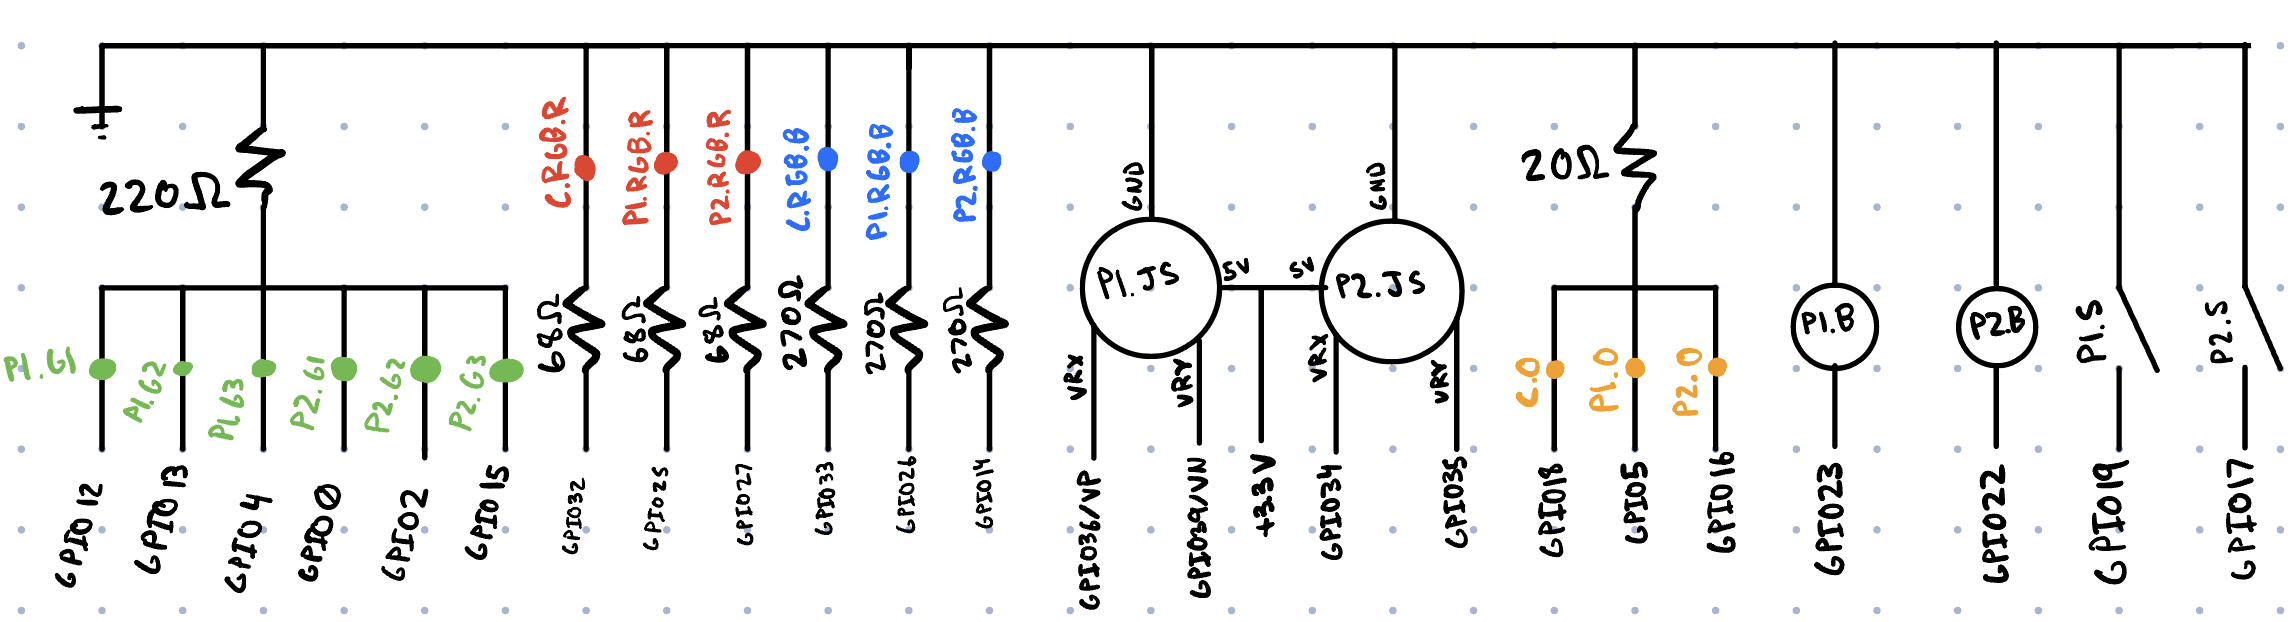 220Ω
P1.G1
P1.G2
P1.G3
P2.G1
P2.G2
P2.G3
GPIO12
GPIO13
GPIO4
GPIO0
GPIO2
GPIO15
C.RGB.R
P1.RGB.R
P2.RGB.R
C.RGB.B
P1.RGB.B
P2.RGB.B
68Ω
68Ω
68Ω
270Ω
270Ω
270Ω
GPIO32
GPIO25
GPIO27
GPIO33
GPIO26
GPIO14
GND
GND
P1.JS
5V
5V
P2.JS
VRX
VRY
VRX
VRY
GPIO36/VP
GPIO39/VN
+3.3V
GPIO34
GPIO35
20Ω
C.O
P1.O
P2.O
GPIO18
GPIO5
GPIO16
P1.B
GPIO23
P2.B
GPIO22
P1.S
GPIO19
P2.S
GPIO17